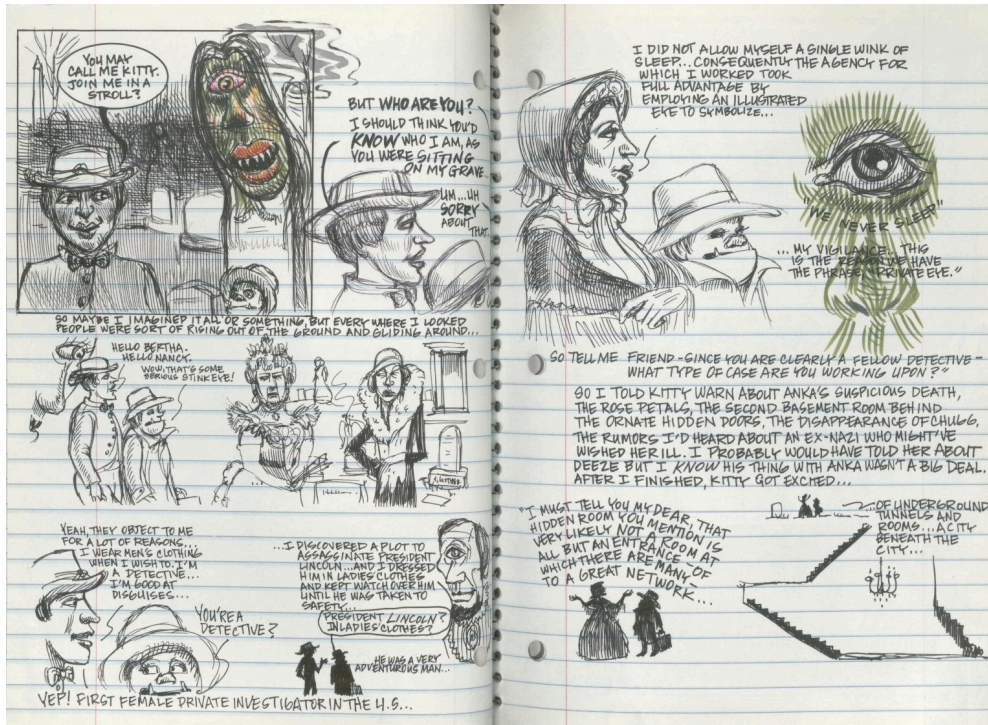 YOU MAY
CALL ME KITTY.
JOIN ME IN A
STROLL?
BUT WHO ARE YOU?
I SHOULD THINK YOU'D
KNOW WHO I AM, AS
YOU WERE SITTING
ON MY GRAVE.
UM...UH
SORRY
ABOUT
THAT.
SO MAYBE I IMAGINED IT ALL OR SOMETHING, BUT EVERY WHERE I LOOKED
PEOPLE WERE SORT OF RISING OUT OF THE GROUND AND GLIDING AROUND...
HELLO BERTHA.
HELLO NANCY.
WOW, THAT'S SOME
SERIOUS STINKEYE!
YEAH, THEY OBJECT TO ME
FOR A LOT OF REASONS...
I WEAR MEN'S CLOTHING
WHEN I WISH TO. I'M
A DETECTIVE...
I'M GOOD AT
DISGUISES...
YOU'RE A
DETECTIVE?
...I DISCOVERED A PLOT TO
ASSASSINATE PRESIDENT
LINCOLN...AND I DRESSED
HIM IN LADIES' CLOTHES
AND KEPT WATCH OVER HIM
UNTIL HE WAS TAKEN TO
SAFETY...
PRESIDENT LINCOLN?
IN LADIES' CLOTHES?
HE WAS A VERY
ADVENTUROUS MAN...
YEP! FIRST FEMALE PRIVATE INVESTIGATOR IN THE U.S...
I DID NOT ALLOW MYSELF A SINGLE WINK OF
SLEEP... CONSEQUENTLY THE AGENCY FOR
WHICH I WORKED TOOK
FULL ADVANTAGE BY
EMPLOYING AN ILLUSTRATED
EYE TO SYMBOLIZE...
"WE NEVER SLEEP"
...MY VIGILANCE. THIS
IS THE REASON WE HAVE
THE PHRASE, "PRIVATE EYE."
SO TELL ME FRIEND - SINCE YOU ARE CLEARLY A FELLOW DETECTIVE -
WHAT TYPE OF CASE ARE YOU WORKING UPON?"
SO I TOLD KITTY WARN ABOUT ANKA'S SUSPICIOUS DEATH,
THE ROSE PETALS, THE SECOND BASEMENT ROOM BEHIND
THE ORNATE HIDDEN DOORS, THE DISAPPEARANCE OF CHUGG,
THE RUMORS I'D HEARD ABOUT AN EX-NAZI WHO MIGHT'VE
WISHED HER ILL. I PROBABLY WOULD HAVE TOLD HER ABOUT
DEEZE BUT I KNOW HIS THING WITH ANKA WASN'T A BIG DEAL.
AFTER I FINISHED, KITTY GOT EXCITED...
"I MUST TELL YOU MY DEAR, THAT
HIDDEN ROOM YOU MENTION IS
VERY LIKELY NOT A ROOM AT
ALL BUT AN ENTRANCE OF
WHICH THERE ARE MANY,
TO A GREAT NETWORK...
...OF UNDERGROUND
TUNNELS AND
ROOMS...A CITY
BENEATH THE
CITY...